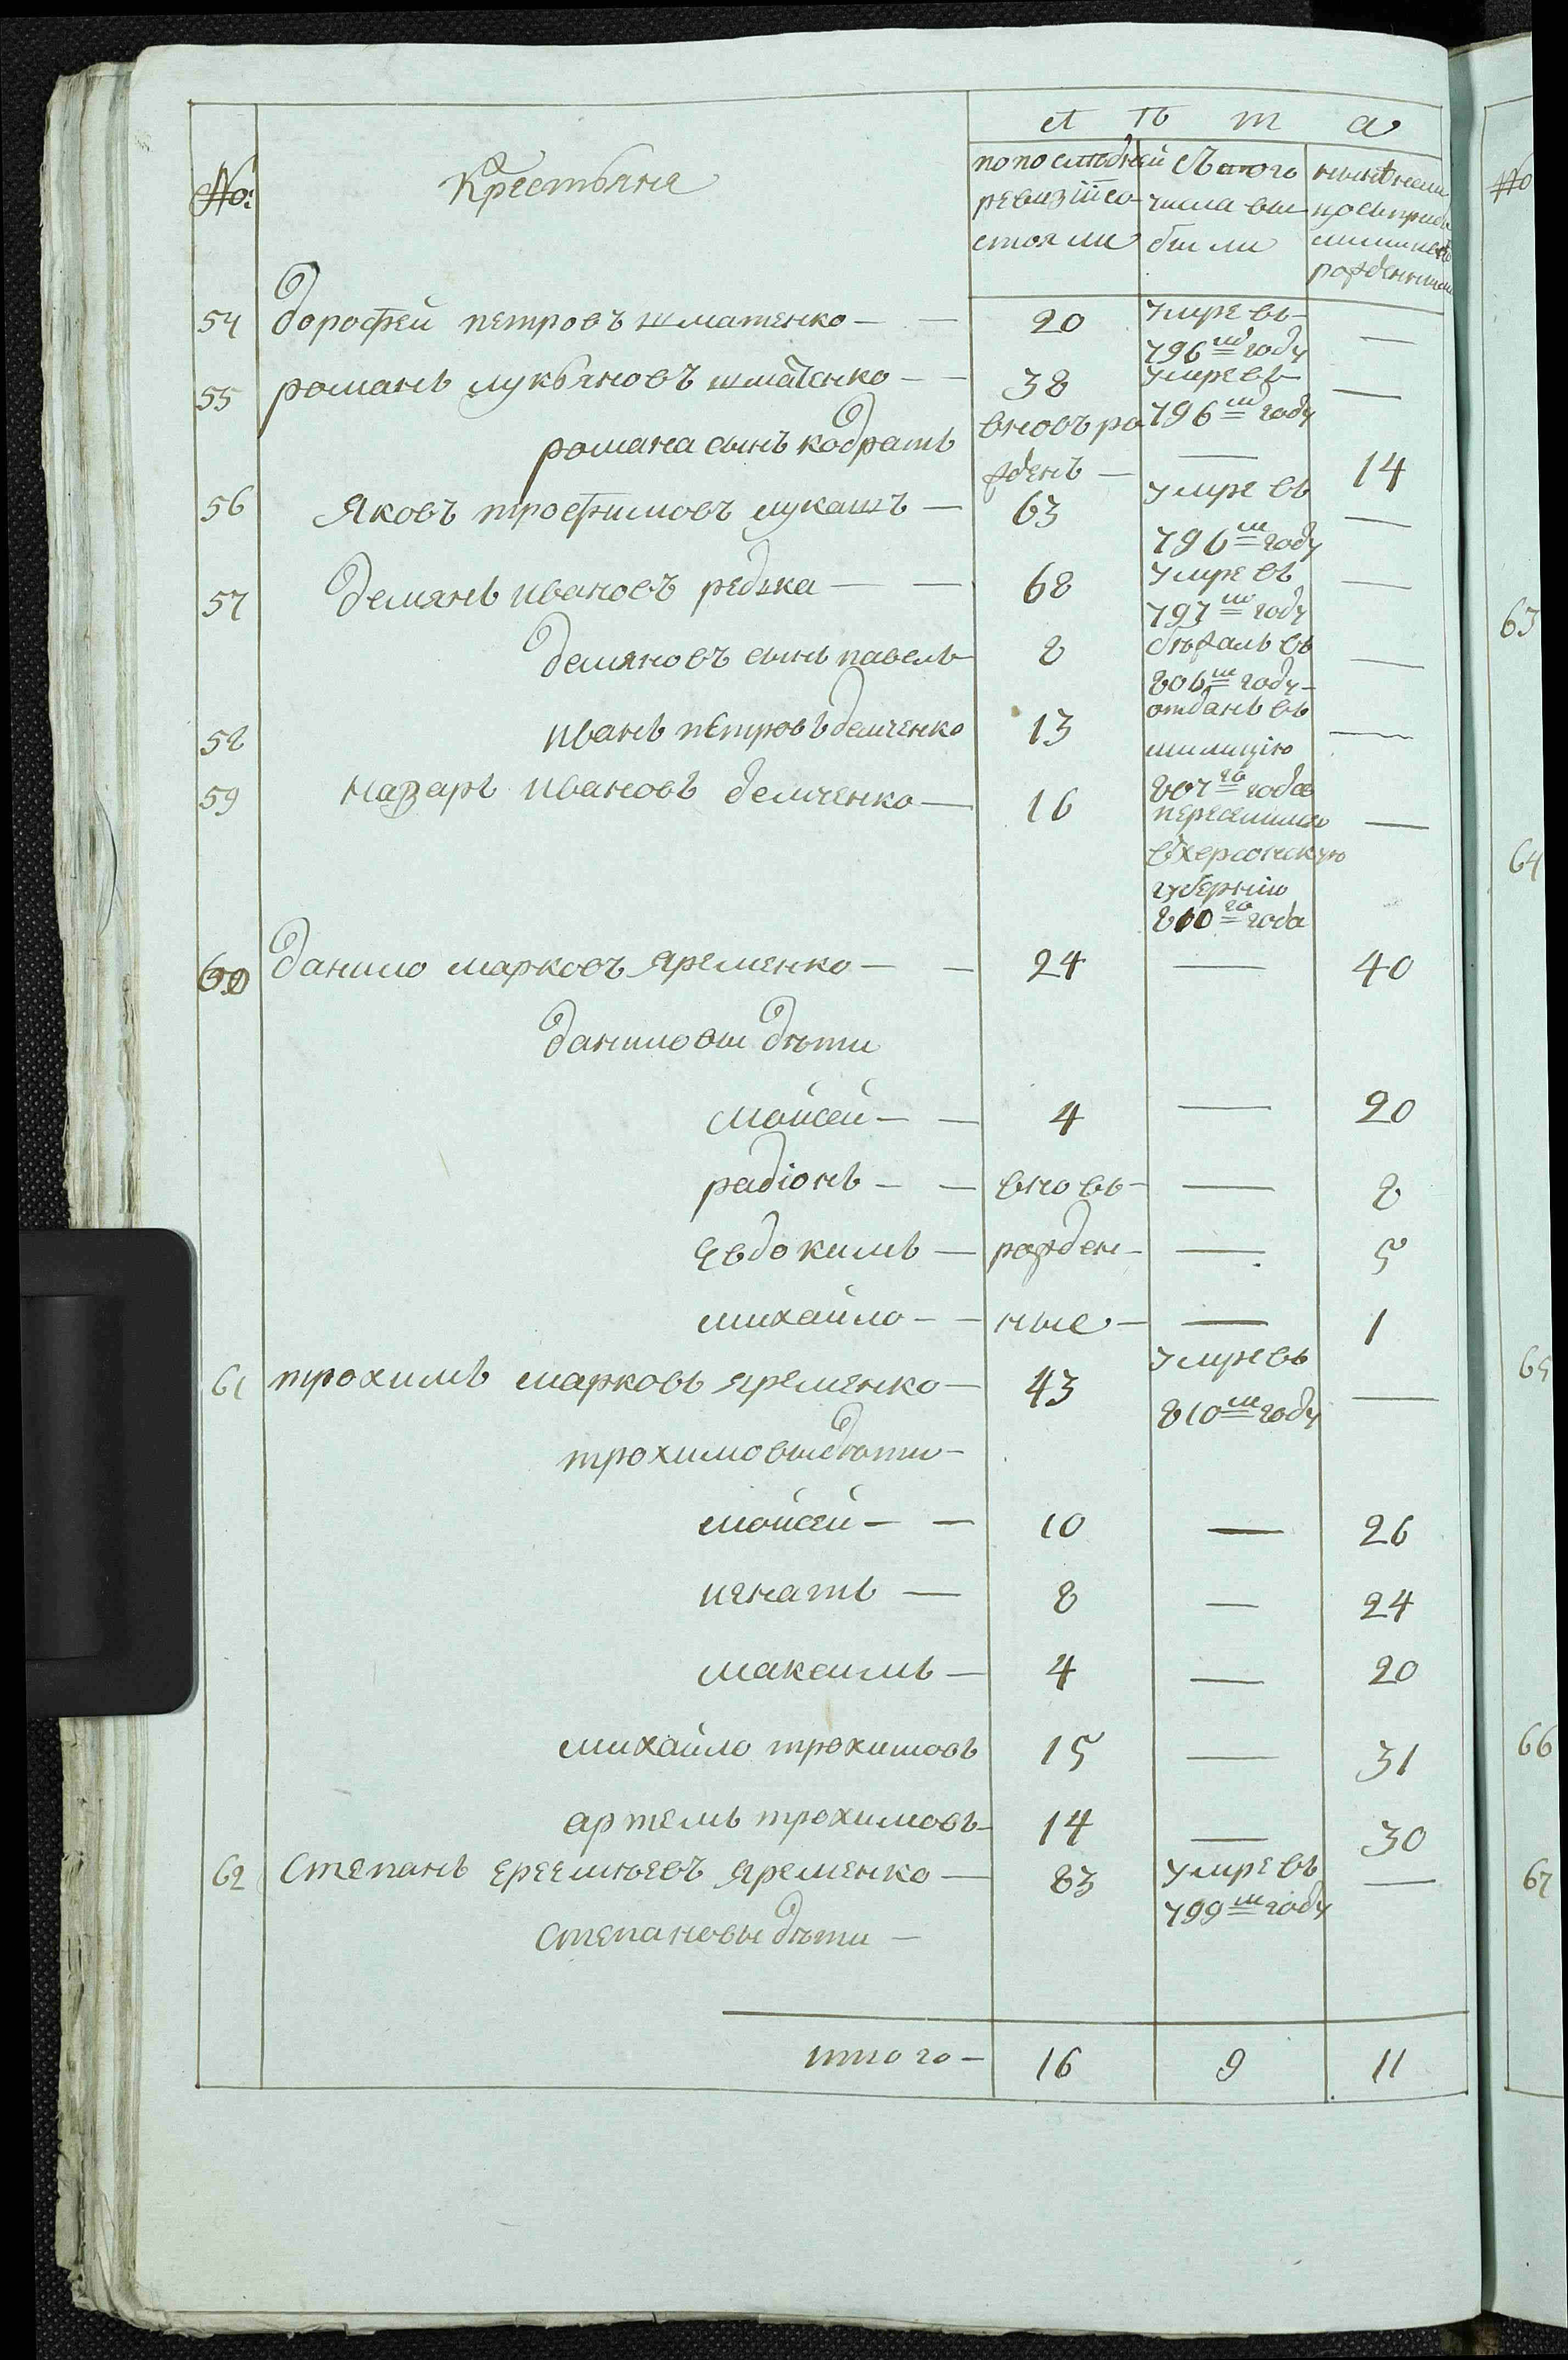 Лѣта
№:
Крестьяне
по последней ревизіи состояли
съ того числа выбыли
ныне на лицо съ прибылыми и рожденными
54 дорофей петровъ шматенко — — 20 умре въ 796м году —
55 романъ лукьяновъ шматенко — — 38 умре въ 796м году —
романа сынъ кодратъ вновъ рожденъ — — 14
56 Яковъ трофимовъ лукашъ — 63 умре въ 796м году —
57 демянъ ивановъ редька — — 68 умре въ 797м году —
демяновъ сынъ павелъ 8 бѣжалъ въ 806м году —
58 иванъ петровъ демченко 13 отданъ въ милицію 807го года —
59 назаръ ивановъ демченко — 16 переселился въ херсонскую губернію 810го года —
60 данило марковъ яременко — — 24 — 40
даниловы дѣти
мойсей — — 4 — 20
радіонъ — — вновь — — 8
евдокимъ — рожден — — 5
михайло — — ные — — 1
61 трохимъ марковъ яременко — 43 умре въ 810м году —
трохимовы дѣти —
мойсей — — 10 — 26
игнатъ — 8 — 24
максимъ — 4 — 20
михайло трохимовъ 15 — 31
артемъ трохимовъ — 14 — 30
62 степанъ ереемѣевъ яременко — 83 умре въ 799м году —
степановы дѣти —
итого — 16 9 11
№
63
64
65
66
67